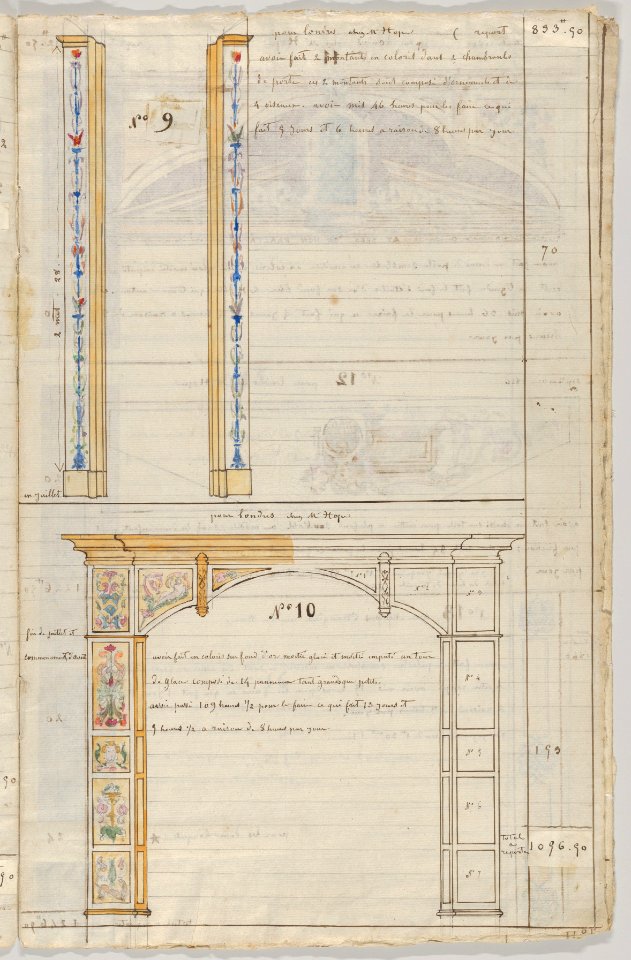 pour londres chez Mr Hope ( report 833.90
avoir fait 2 montants en coloris dans 2 chambranle
de porte ces 2 montants sont composé d'ornements et de
4 oiseaux. avoir mis 46 heures pour les faire ce qui
fait 5 Jours et 6 heures a raison de 8 heures par jour
No 9
70
2 mèt 28
en juillet
pour londres chez Mr Hope
No 10
No 1
No 2
No 3
fin de juillet et
commencement d'août
avoir fait en coloris sur fond d'or moitié glacé et moitié empaté un tour
de glace composé de 14 panneaux tant grands que petits.
avoir passé 109 heures 1/2 pour le faire ce qui fait 13 jours et
5 heures 1/2 a raison de 8 heures par jour
No 4
No 5
No 6
No 7
193
total
a
reporter
1096.90